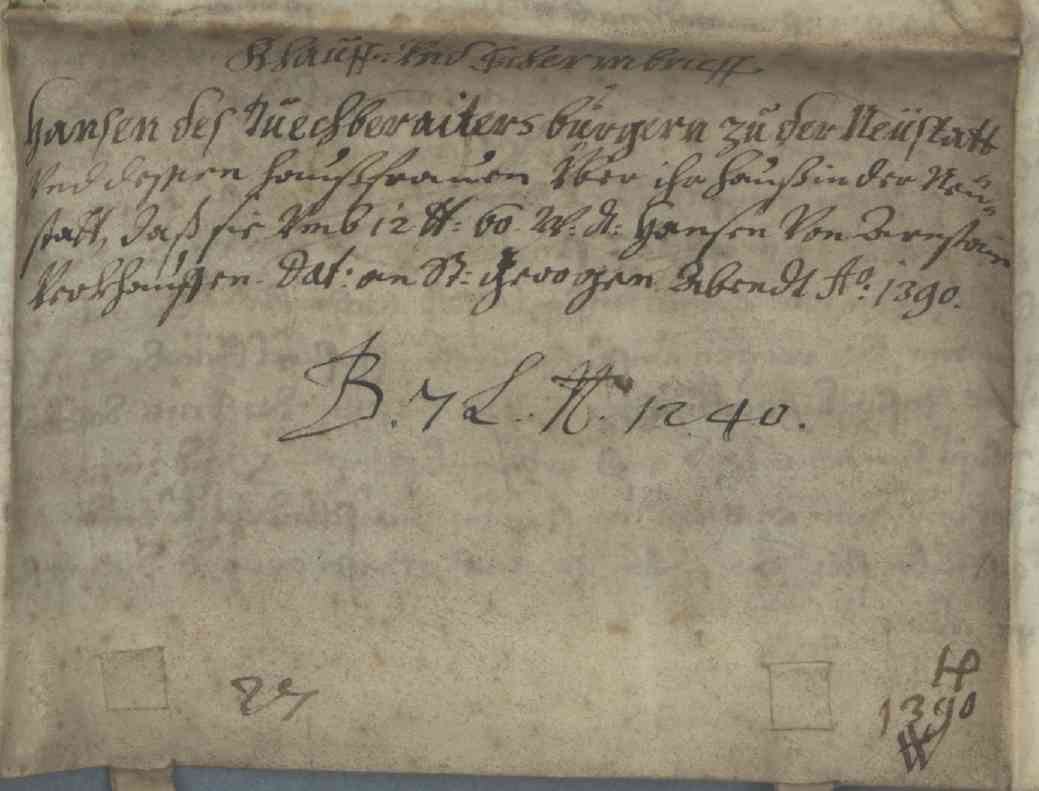 Khauff: Vnd Schermbrieff.
Hansen des Tuechberaiters burgern zu der Neustatt
Vnd dessen haussfrauen Über ihr hauß in der Neu-
statt, daß sie Vmb 12 ℔: 60. W. ₰: Hansen Von Arnstain
Verkhauffen. Dat: an St: Georgen Abendt Aō: 1390.
B. 7 L. N. 1240.
1390